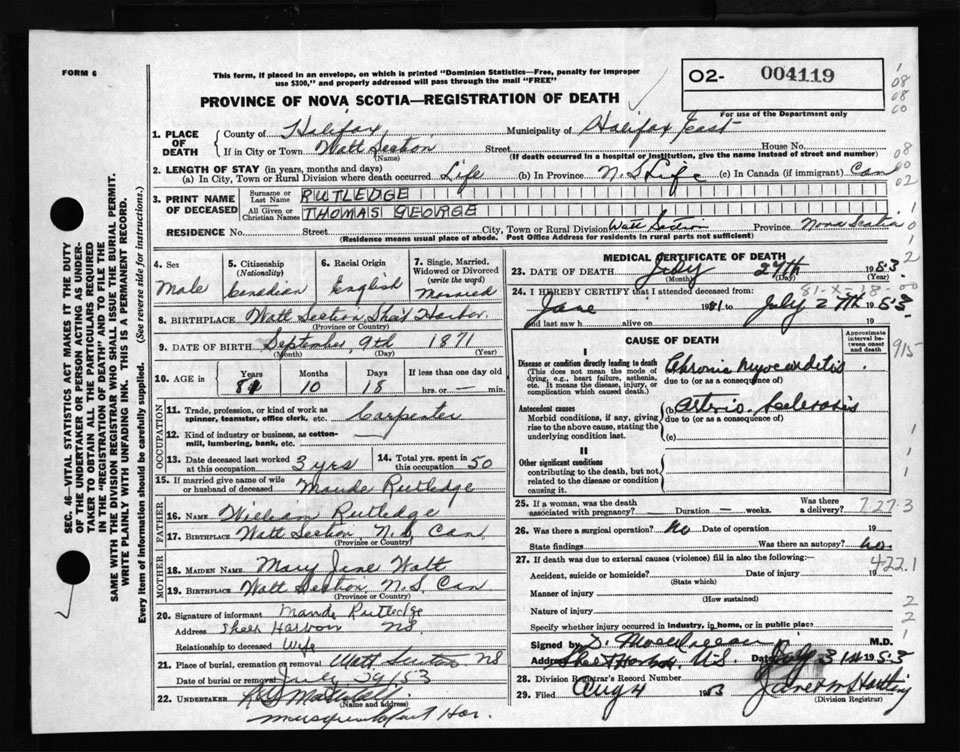 FORM 6
This form, if placed in an envelope, on which is printed "Dominion Statistics—Free, penalty for improper
use $300," and properly addressed will pass through the mail "FREE"
O2- 004119
For use of the Department only
PROVINCE OF NOVA SCOTIA—REGISTRATION OF DEATH
1. PLACE OF DEATH County of Halifax, Municipality of Halifax East
If in City or Town Watt Section (Name) Street House No.
(If death occurred in a hospital or institution, give the name instead of street and number)
2. LENGTH OF STAY (in years, months and days)
(a) In City, Town or Rural Division where death occurred Life (b) In Province N.S Life (c) In Canada (if immigrant) Can
3. PRINT NAME OF DECEASED Surname or Last Name RUTLEDGE
All Given or Christian Names THOMAS GEORGE
RESIDENCE No. Street City, Town or Rural Division Watt Section Province Nova Scotia
(Residence means usual place of abode. Post Office Address for residents in rural parts not sufficient)
4. Sex Male
5. Citizenship (Nationality) Canadian
6. Racial Origin English
7. Single, Married, Widowed or Divorced (write the word) Married
8. BIRTHPLACE Watt Section Sheet Harbor
(Province or Country)
9. DATE OF BIRTH September 9th 1871
(Month) (Day) (Year)
10. AGE in Years 81 Months 10 Days 18 If less than one day old hrs. or — min.
OCCUPATION
11. Trade, profession, or kind of work as spinner, teamster, office clerk, etc. Carpenter
12. Kind of industry or business, as cotton-mill, lumbering, bank, etc.
13. Date deceased last worked at this occupation 3 yrs
14. Total yrs. spent in this occupation 50
15. If married give name of wife or husband of deceased Maude Rutledge
FATHER
16. NAME William Rutledge
17. BIRTHPLACE Watt Section N.S. Can
(Province or Country)
MOTHER
18. MAIDEN NAME Mary Jane Watt
19. BIRTHPLACE Watt Section, N.S. Can
(Province or Country)
20. Signature of informant Maude Rutledge
Address Sheet Harbour NS.
Relationship to deceased Wife
21. Place of burial, cremation or removal Watt Section NS
Date of burial or removal July 29/53
22. UNDERTAKER
(Name and address)
Musquodoboit Har.
MEDICAL CERTIFICATE OF DEATH
23. DATE OF DEATH July 27th 1953
(Month) (Day) (Year)
81-X-18-00
24. I HEREBY CERTIFY that I attended deceased from:
June 1951 to July 27th 1953
and last saw h alive on 19
CAUSE OF DEATH
Approximate interval between onset and death
I
Disease or condition directly leading to death
(This does not mean the mode of dying, e.g., heart failure, asthenia, etc. It means the disease, injury, or complication which caused death.)
Chronic Myocarditis
due to (or as a consequence of)
Antecedent causes
Morbid conditions, if any, giving rise to the above cause, stating the underlying condition last.
(b) Arterio. Sclerosis
due to (or as a consequence of)
(c)
II
Other significant conditions
contributing to the death, but not related to the disease or condition causing it.
25. If a woman, was the death associated with pregnancy? Duration — weeks. Was there a delivery?
727.3
26. Was there a surgical operation? No Date of operation 19
State findings Was there an autopsy? no.
27. If death was due to external causes (violence) fill in also the following:—
422.1
Accident, suicide or homicide? Date of injury 19
(State which)
Manner of injury
(How sustained)
Nature of injury
Specify whether injury occurred in industry, in home, or in public place
Signed by M.D.
Address Sheet Harbor, N.S. Date July 31st 1953
28. Division Registrar's Record Number
29. Filed Aug 4 1953
(Division Registrar)
915
SEC. 46—VITAL STATISTICS ACT MAKES IT THE DUTY
OF THE UNDERTAKER OR PERSON ACTING AS UNDER-
TAKER TO OBTAIN ALL THE PARTICULARS REQUIRED
IN THE "REGISTRATION OF DEATH" AND TO FILE THE
SAME WITH THE DIVISION REGISTRAR WHO SHALL ISSUE THE BURIAL PERMIT.
WRITE PLAINLY WITH UNFADING INK. THIS IS A PERMANENT RECORD.
Every item of information should be carefully supplied. (See reverse side for instructions.)